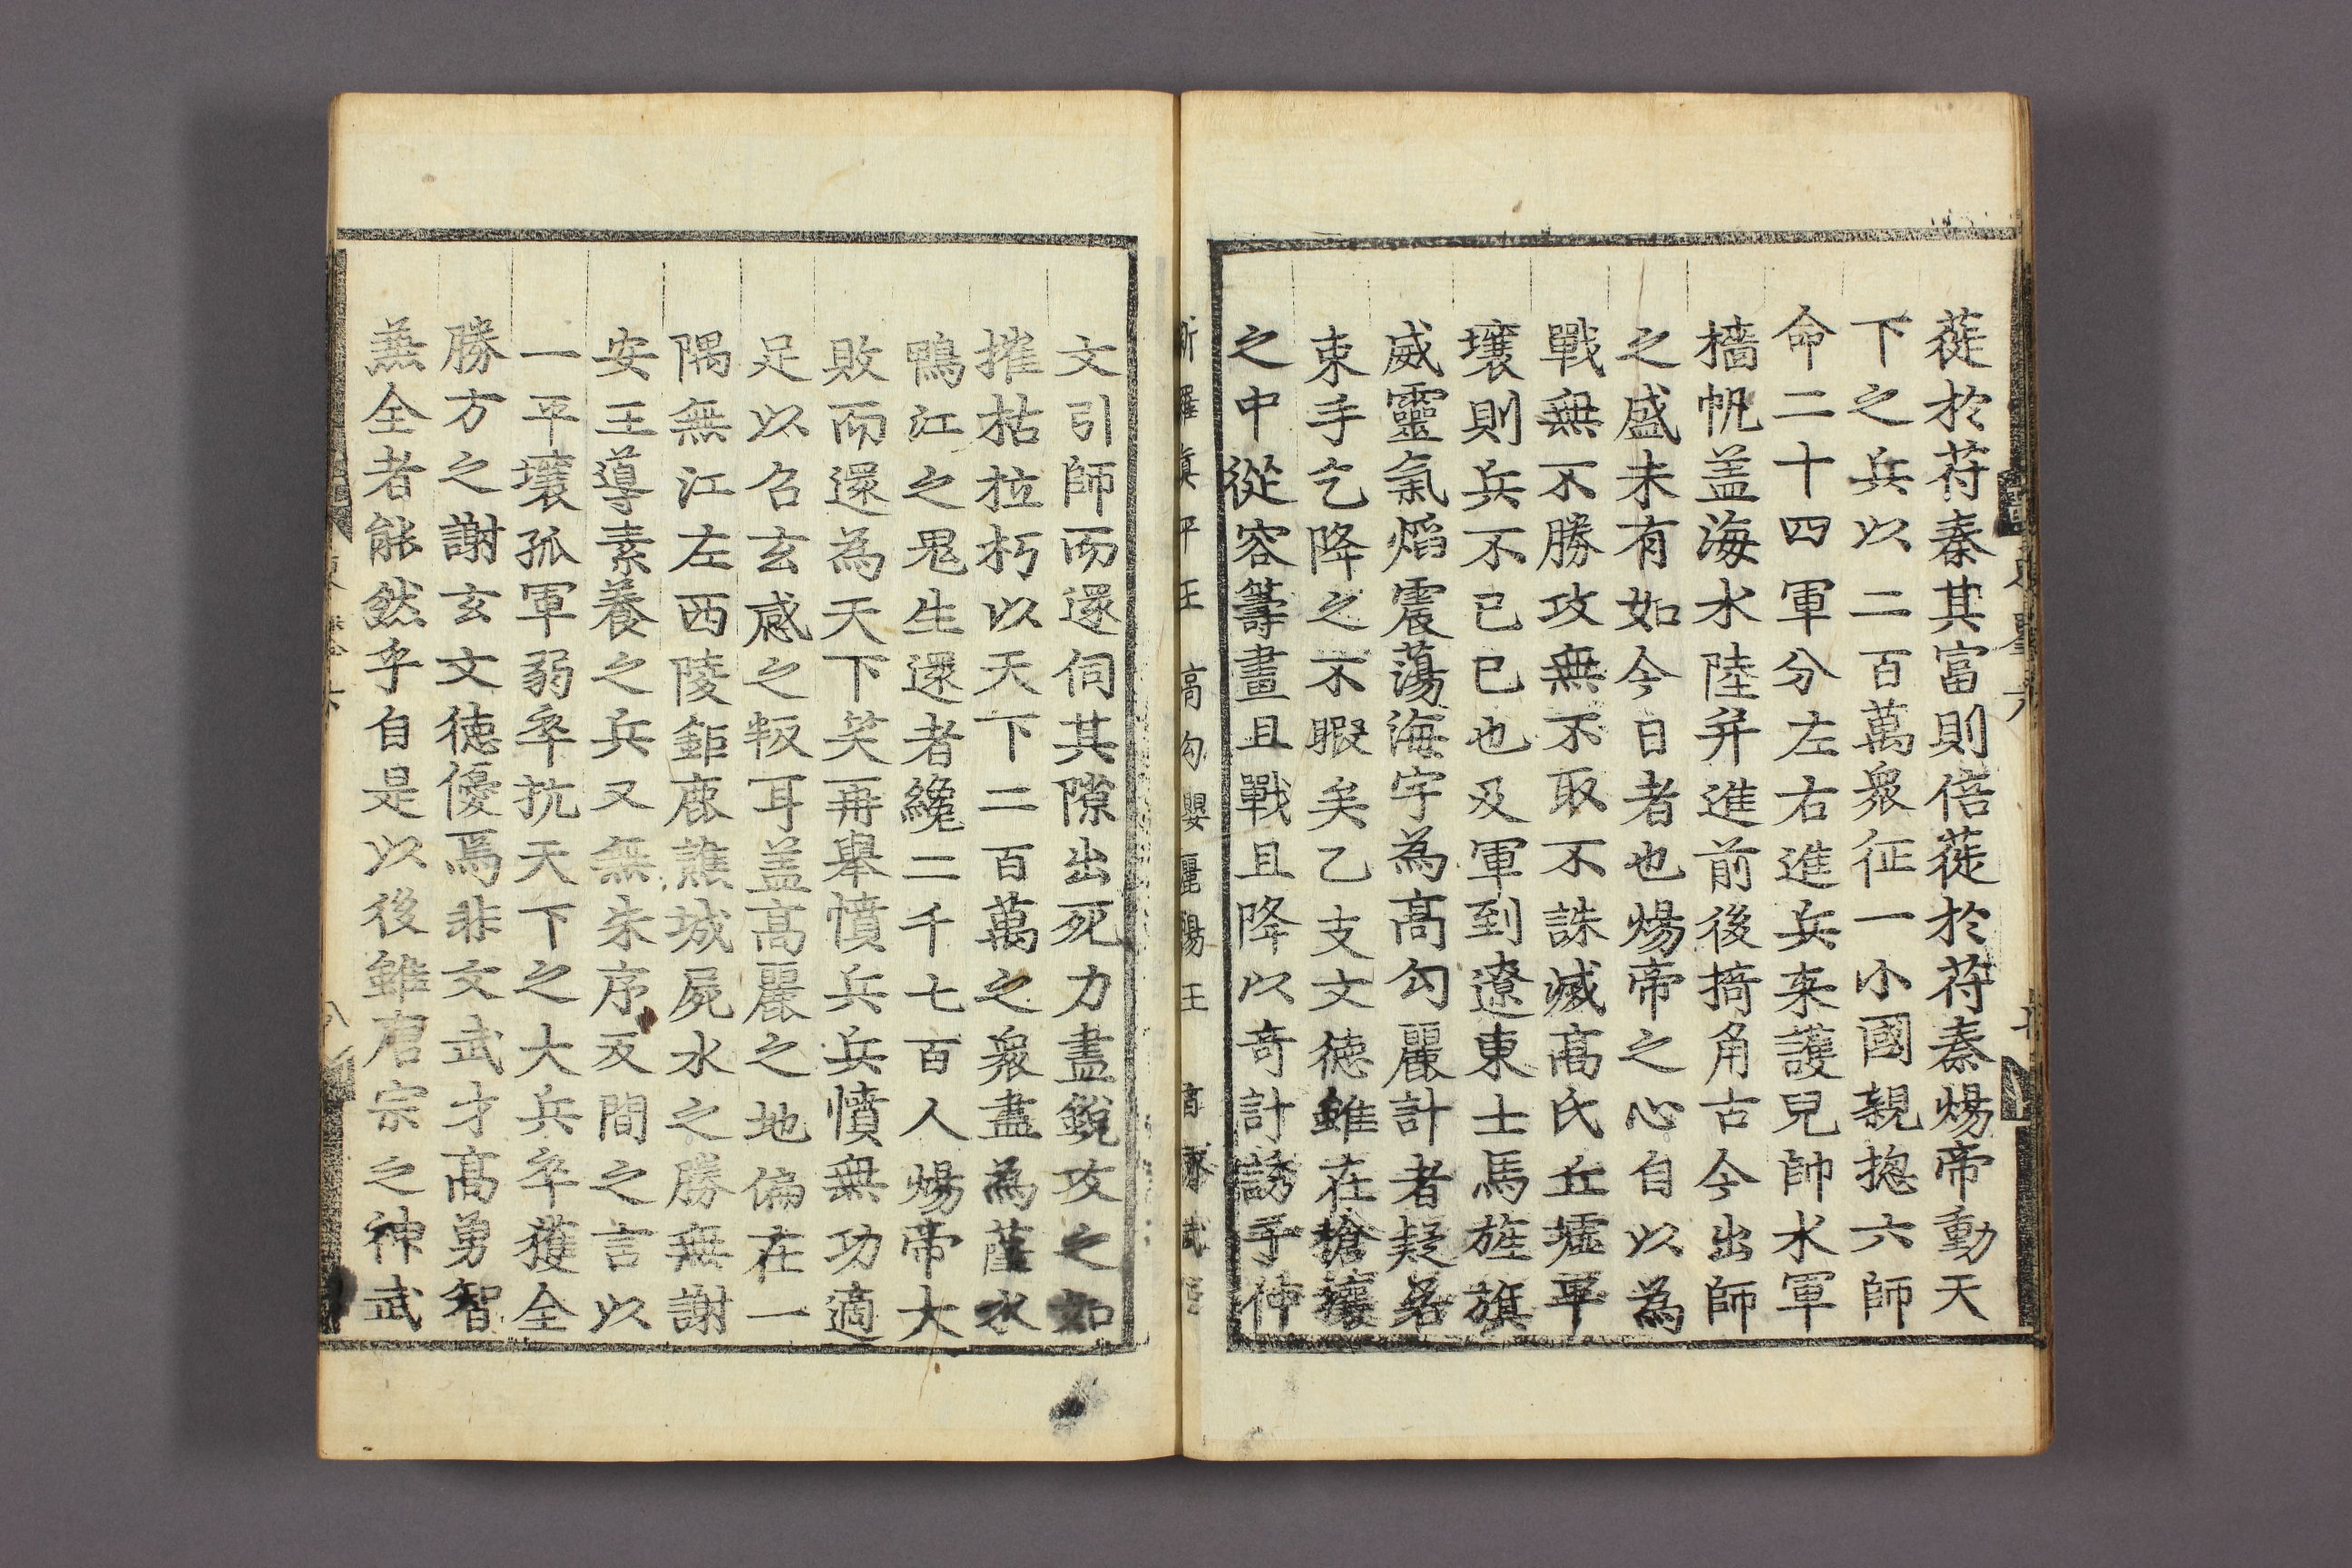 蓰於苻秦其富則倍蓰於苻秦煬帝動天
下之兵以二百萬衆征一小國親揔六師
命二十四軍分左右進兵来護兒帥水軍
檣帆盖海水陸并進前後掎角古今出師
之盛未有如今日者也煬帝之心自以為
戰無不勝攻無不取不誅滅高氏丘墟平
壤則兵不已已也及軍到遼東士馬旌旗
威靈氣熖震蕩海宇為高勾麗計者疑若
束手乞降之不暇矣乙支文徳雖在搶攘
之中從容籌畫且戰且降以奇計誘于仲
新羅眞平王 高句嬰陽王 百濟武王
文引師而還伺其隙出死力盡銳攻之如
摧枯拉朽以天下二百萬之衆盡為薩水
鴨江之鬼生還者纔二千七百人煬帝大
敗而還為天下笑再舉憤兵兵憤無功適
足以召玄感之叛耳盖高麗之地偏在一
隅無江左西陵鉅鹿譙城屍水之勝無謝
安王導素養之兵又無朱序反間之言以
一平壤孤軍弱卒抗天下之大兵卒獲全
勝方之謝玄文徳優焉非文武才高勇智
兼全者能然乎自是以後雖唐宗之神武